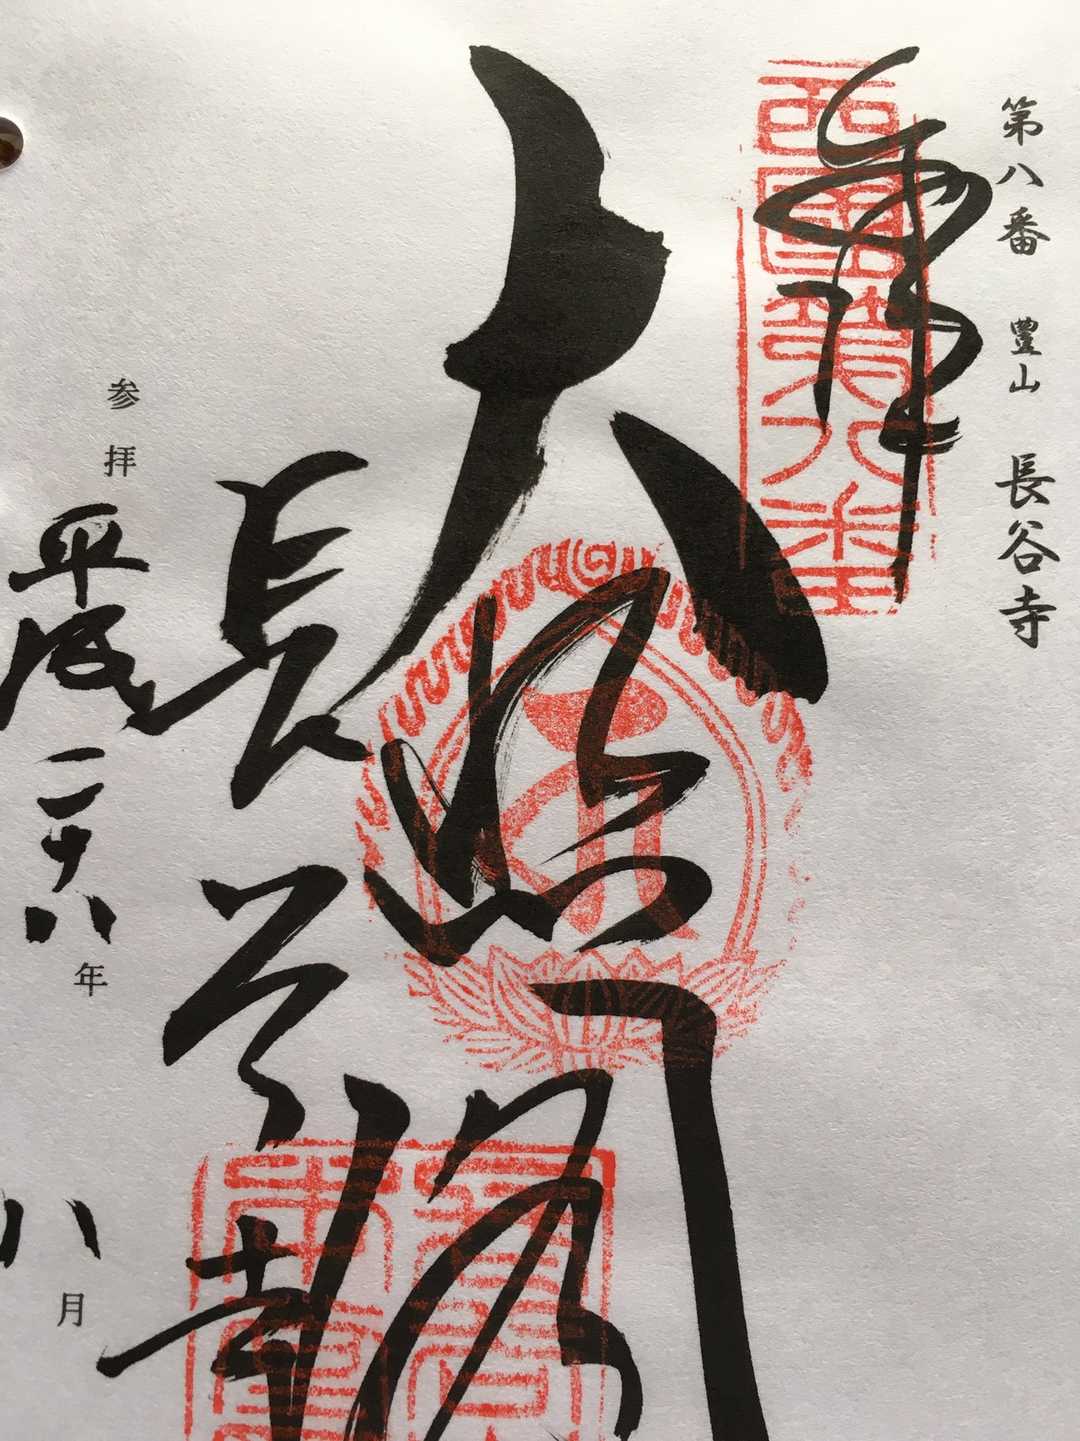 第八番 豊山 長谷寺
奉拝
西國第八番
大悲閣
長谷寺
参拝 平成二十八年 八月